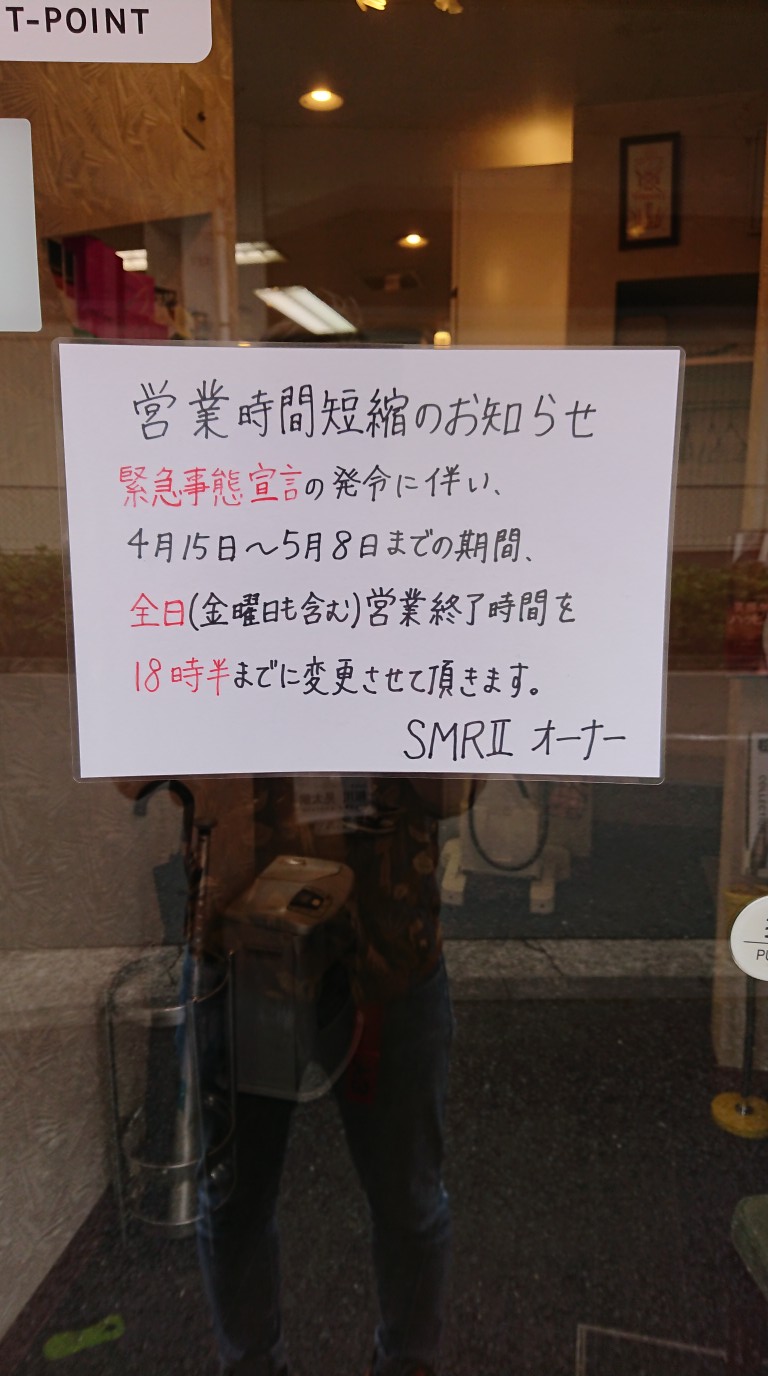 T-POINT
営業時間短縮のお知らせ
緊急事態宣言の発令に伴い、
4月15日〜5月8日までの期間、
全日(金曜日も含む)営業終了時間を
18時半までに変更させて頂きます。
SMRⅡ オーナー